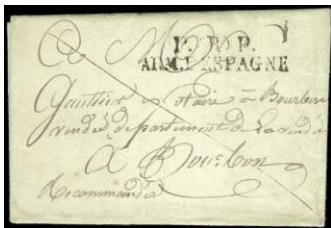 A M
P. P. P.
ARM. D'ESPAGNE
Gauttier Notaire à Bourbon
vendée département de la vendée
A Bourbon
Recommandée